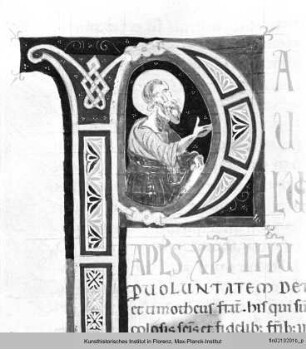 P A
U
LU
APLS XPI IHU
P UOLUNTATEM DEI
et timotheus frat̄. his qui sun
colosis scis et fidelib; frib; in
Kunsthistorisches Institut in Florenz, Max-Planck-Institut